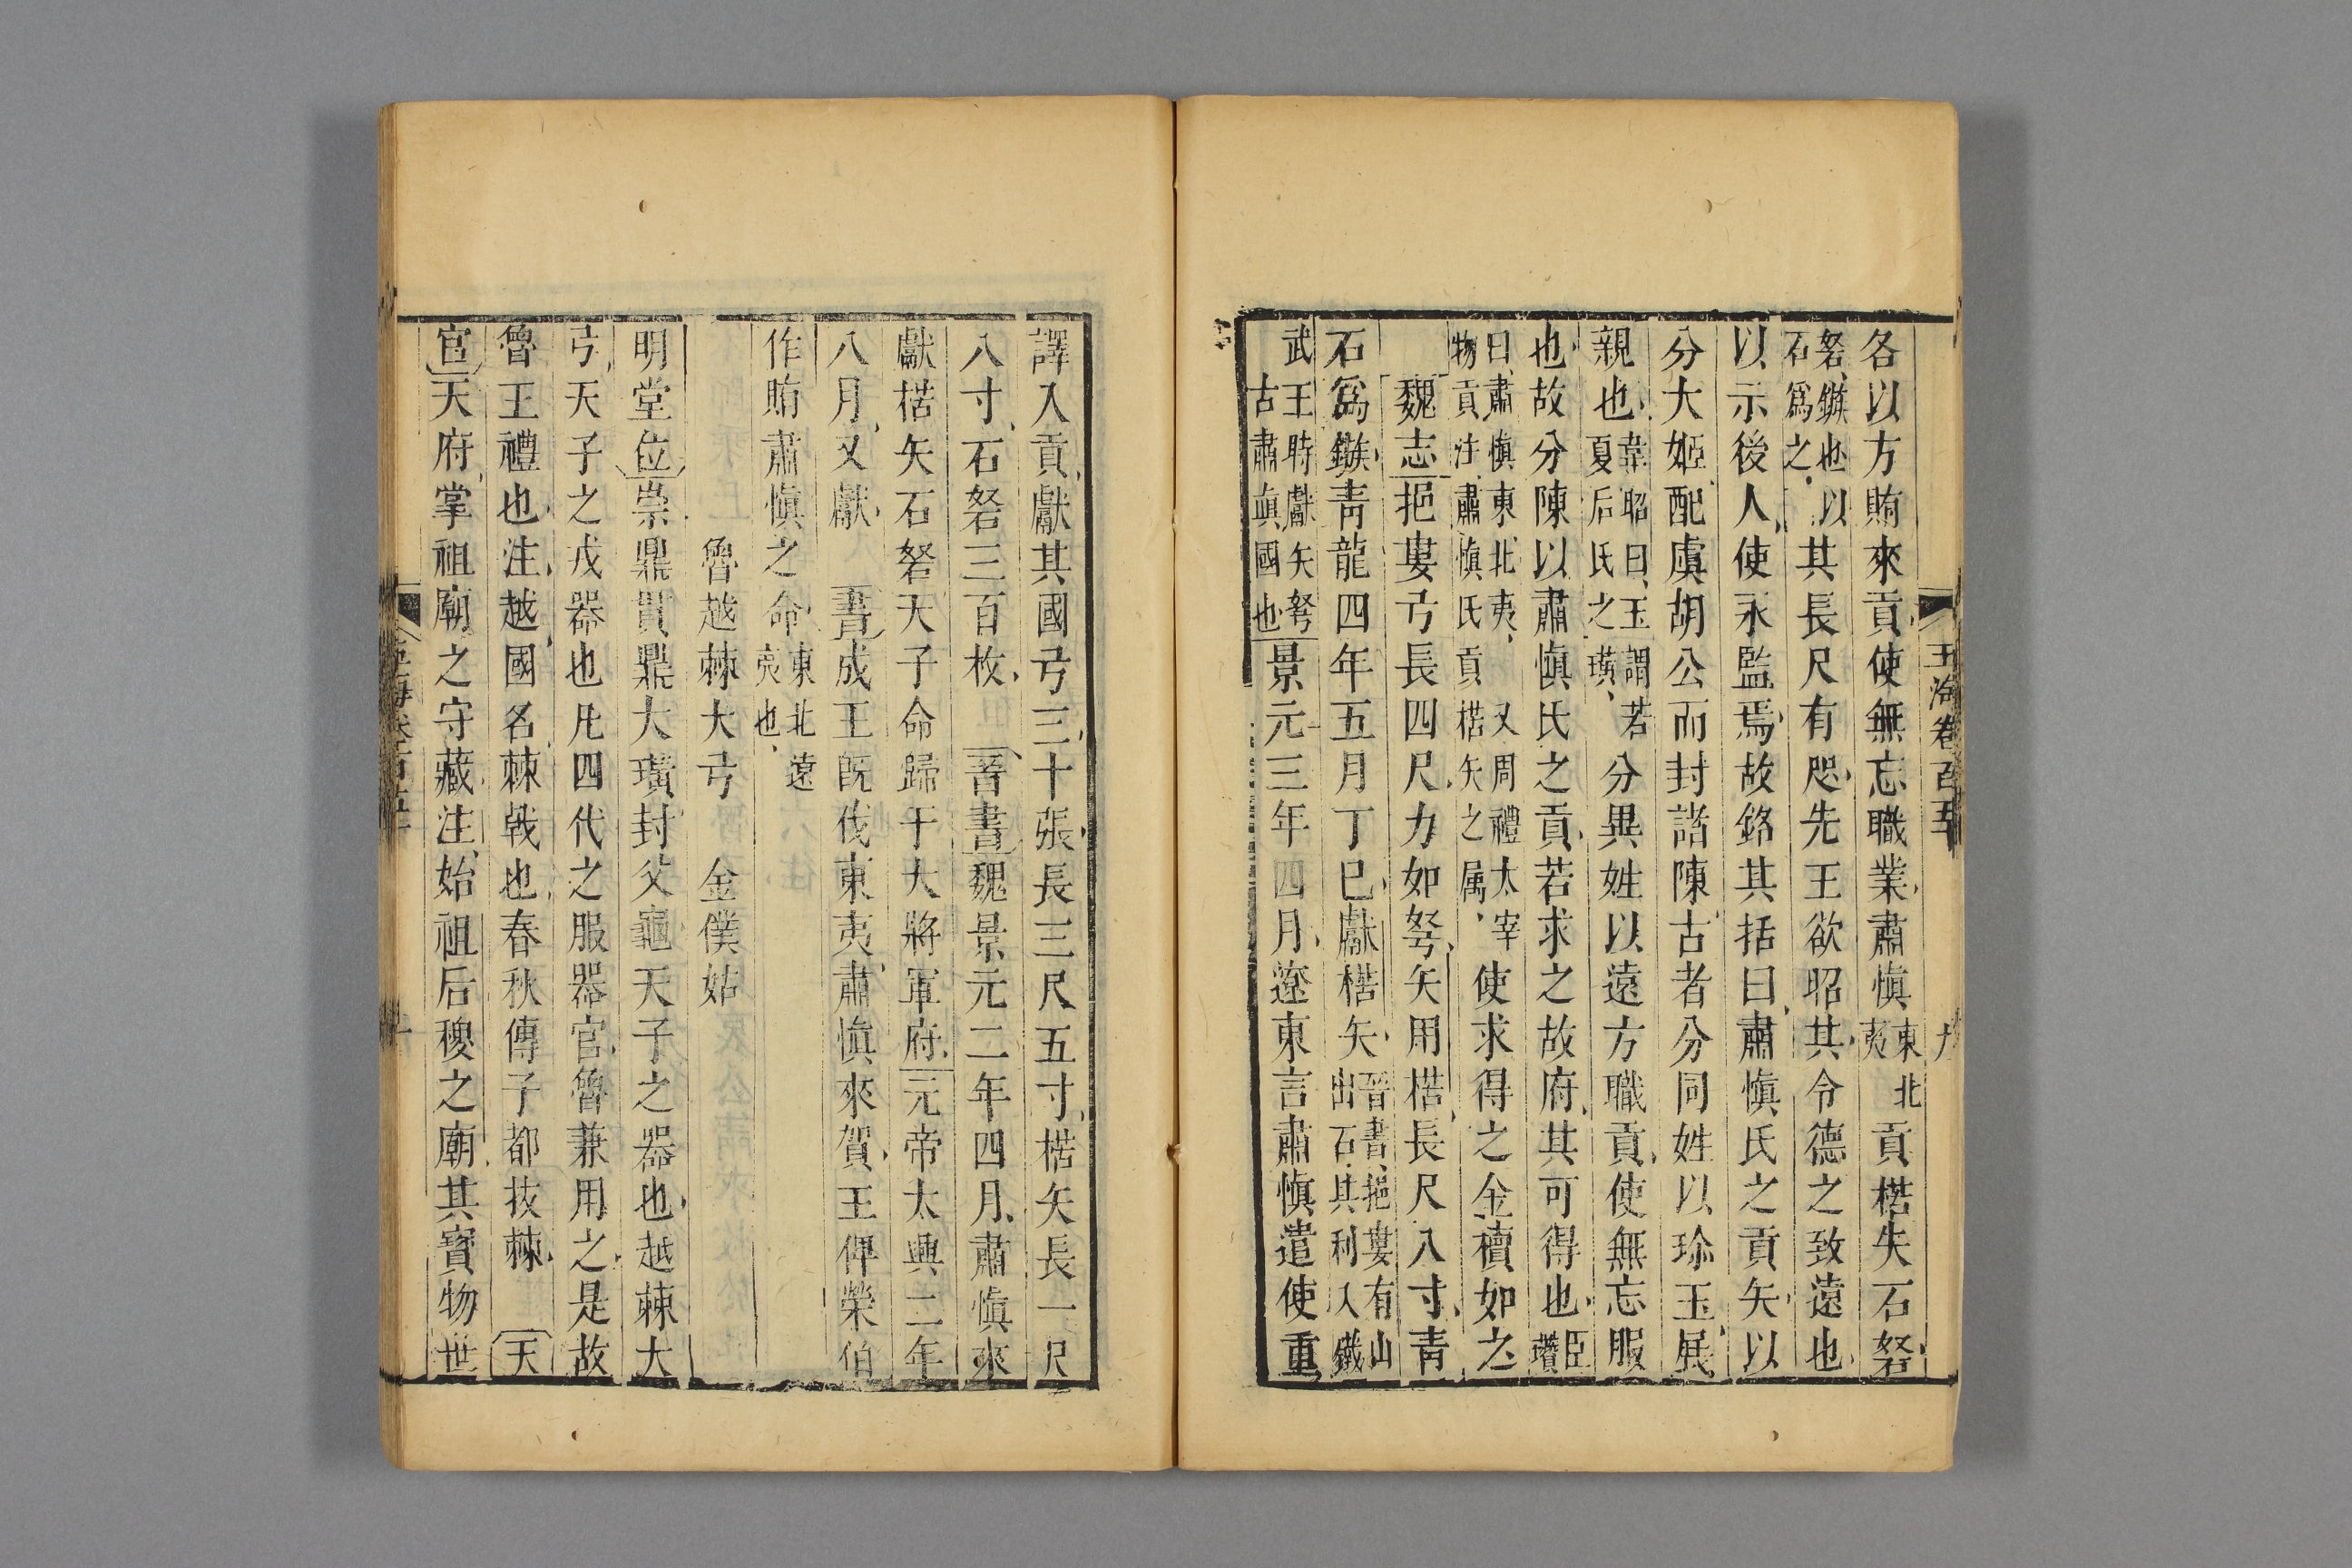 玉海卷百五十 九
各以方賄來貢使無忘職業肅愼東北夷貢楛矢石砮
砮鏃也以石爲之其長尺有咫先王欲昭其令德之致遠也
以示後人使永監焉故銘其括曰肅愼氏之貢矢以
分大姬配虞胡公而封諸陳古者分同姓以珍玉展
親也韋昭曰玉謂若夏后氏之璜分異姓以遠方職貢使無忘服
也故分陳以肅愼氏之貢若求之故府其可得也臣瓚
曰肅愼東北夷又周禮太宰物貢注肅愼氏貢楛矢之属使求得之金櫝如之
魏志挹婁弓長四尺力如弩矢用楛長尺八寸靑
石爲鏃靑龍四年五月丁巳獻楛矢晉書挹婁有山出石其利入鐵
武王時獻矢弩古肅眞國也景元三年四月遼東言肅愼遣使重
譯入貢獻其國弓三十張長三尺五寸楛矢長一尺
八寸石砮三百枚晉書魏景元二年四月肅愼來
獻楛矢石砮天子命歸于大將軍府元帝太興二年
八月又獻書成王旣伐東夷肅愼來賀王俾榮伯
作賄肅愼之命東北遠夷也
魯越棘大弓 金僕姑
明堂位崇鼎貫鼎大璜封父龜天子之器也越棘大
弓天子之戎器也凡四代之服器官魯兼用之是故
魯王禮也注越國名棘戟也春秋傳子都拔棘 天
官天府掌祖廟之守藏注始祖后稷之廟其寶物世